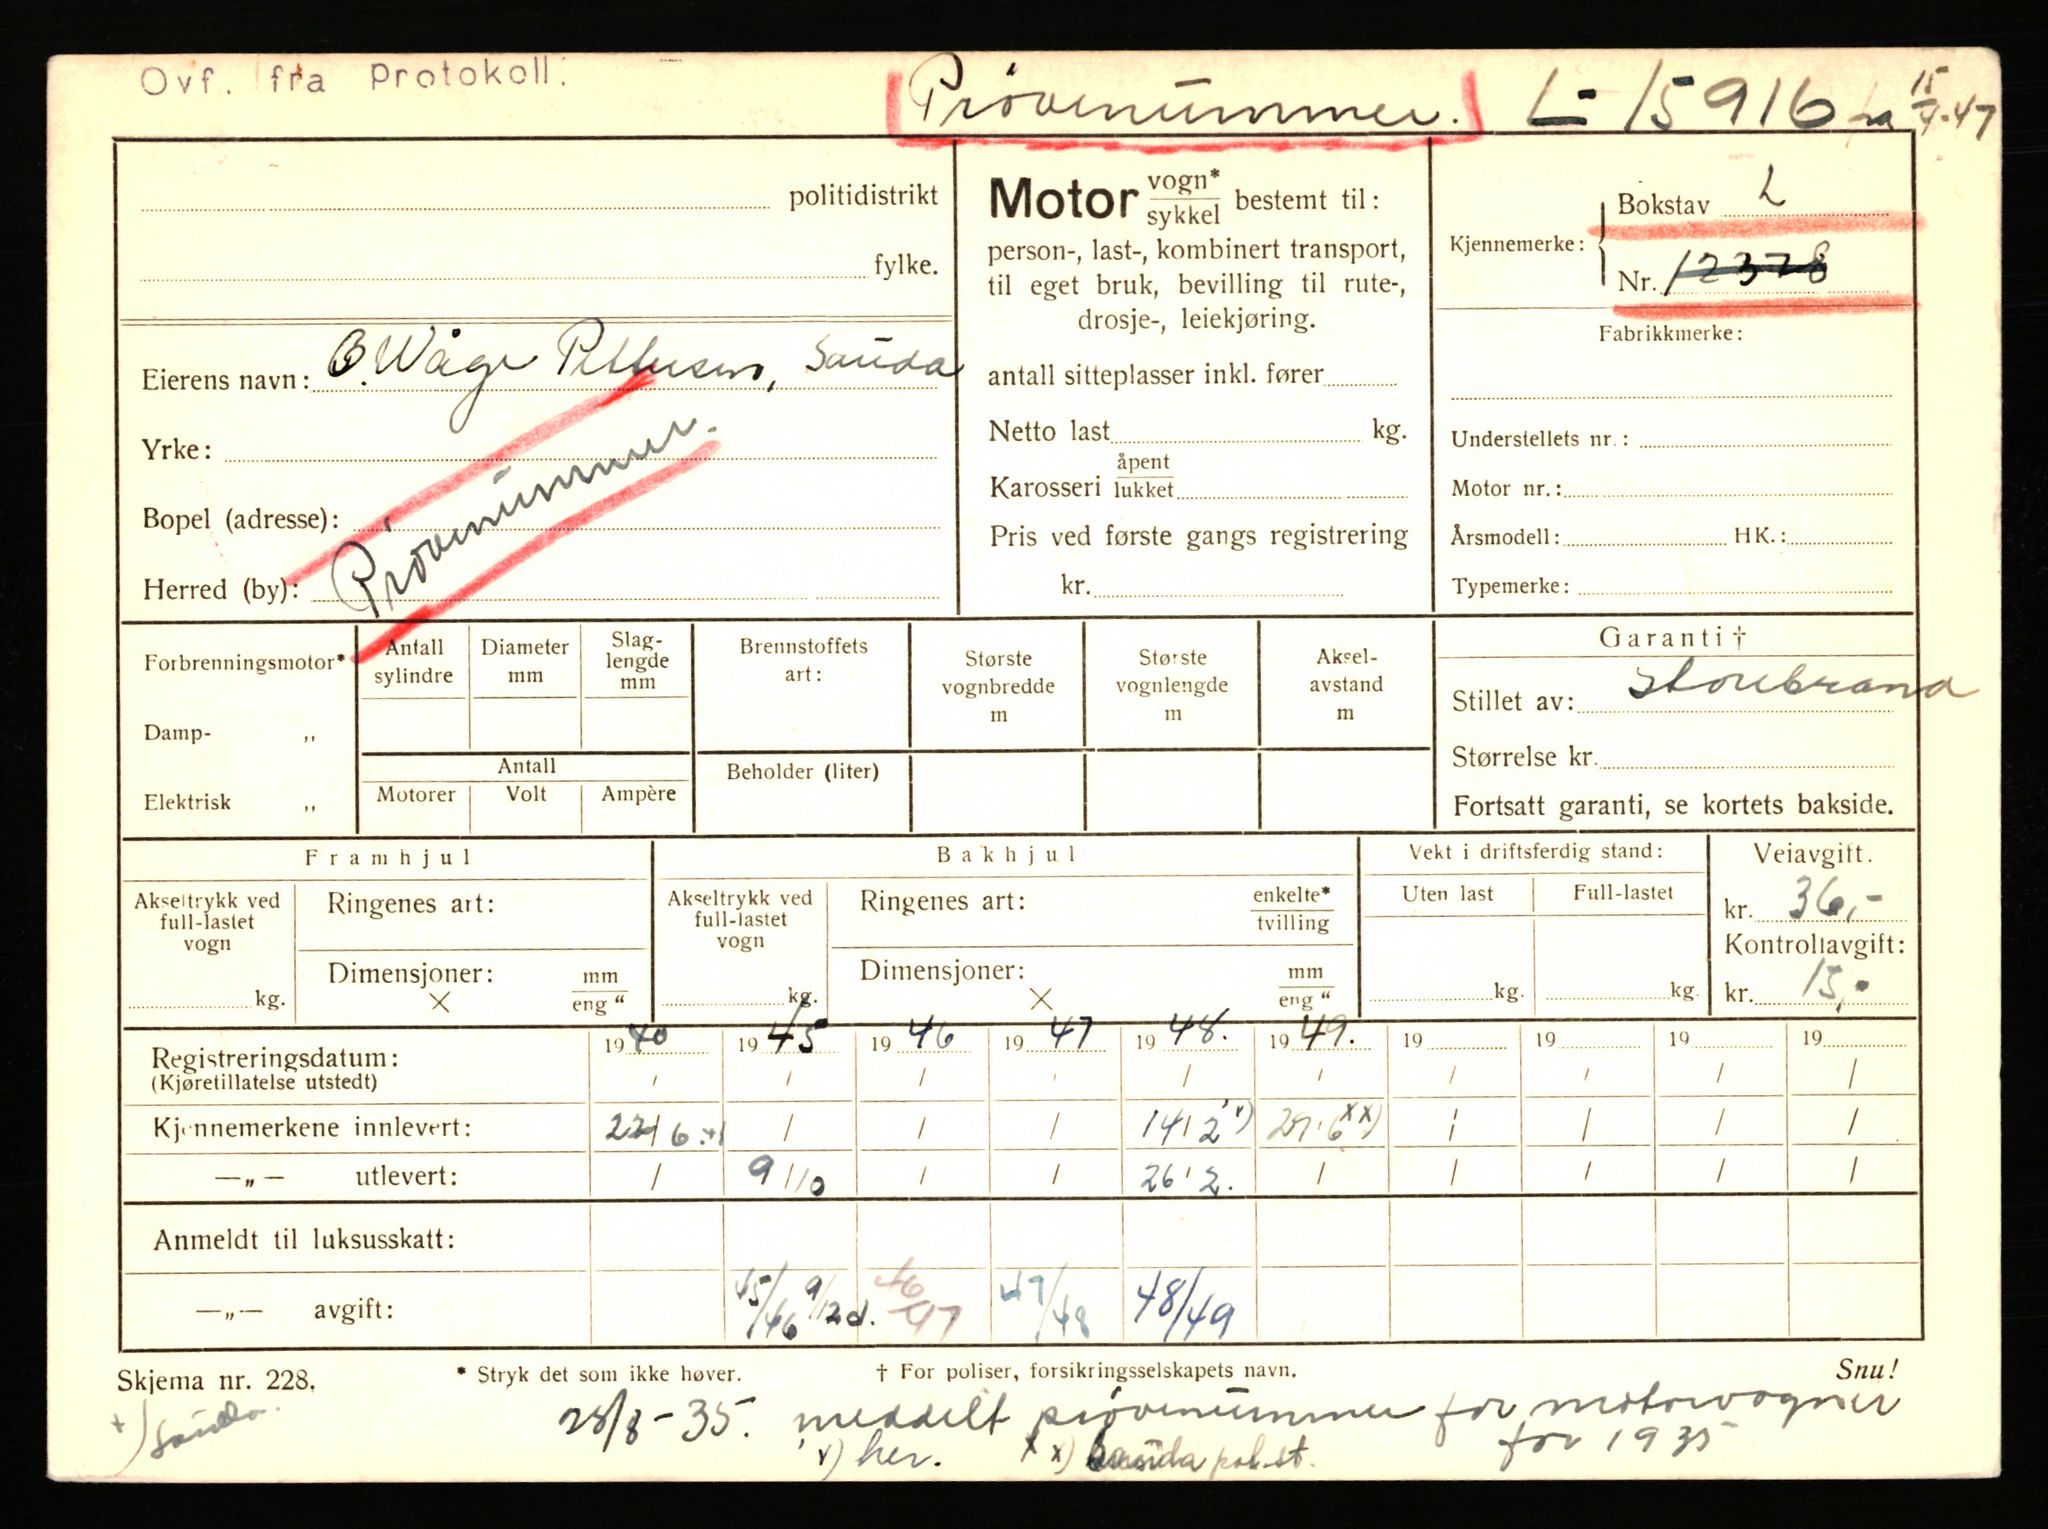 Ovf. fra Protokoll.
Prøvenummer. L-15916 fra 15/4-47
politidistrikt
fylke.
Motor vogn*/sykkel bestemt til:
person-, last-, kombinert transport,
til eget bruk, bevilling til rute-,
drosje-, leiekjøring.
Kjennemerke: Bokstav L
Nr. 12378
Fabrikkmerke:
Eierens navn: B. Wåge Pettersen, Sauda
Yrke:
Bopel (adresse):
Herred (by):
Prøvenummer.
antall sitteplasser inkl. fører
Netto last kg.
Karosseri åpent/lukket
Pris ved første gangs registrering
kr.
Understellets nr.:
Motor nr.:
Årsmodell: HK.:
Typemerke:
Forbrenningsmotor*
Damp- „
Elektrisk „
Antall sylindre
Diameter mm
Slag-
lengde
mm
Antall
Motorer Volt Ampère
Brennstoffets
art:
Beholder (liter)
Største
vognbredde
m
Største
vognlengde
m
Aksel-
avstand
m
Garanti †
Stillet av: Storebrand
Størrelse kr.
Fortsatt garanti, se kortets bakside.
Framhjul
Akseltrykk ved
full-lastet
vogn
kg.
Ringenes art:
Dimensjoner: mm/eng "
×
Bakhjul
Akseltrykk ved
full-lastet
vogn
kg.
Ringenes art: enkelte*/tvilling
Dimensjoner: mm/eng "
×
Vekt i driftsferdig stand:
Uten last Full-lastet
kg. kg.
Veiavgift.
kr. 36,-
Kontrollavgift:
kr. 15,-
Registreringsdatum: 1940 1945 1946 1947 1948. 1949. 19 19 19 19
(Kjøretillatelse utstedt) / / / / / / / / / /
Kjennemerkene innlevert: 22/6 +) / / / 14/2 v) 29/6 xx) / / / /
—„— utlevert: / 9/10 / / 26/2. / / / / /
Anmeldt til luksusskatt:
—„— avgift: 45/46 9/12 d. 46/47 47/48 48/49
Skjema nr. 228.
* Stryk det som ikke høver.
† For poliser, forsikringsselskapets navn.
Snu!
+) Sauda.
28/8-35. meddelt prøvenummer for motorvogner
for 1935
v) her. xx) Sauda pol.st.